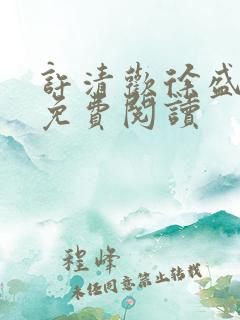 許清歡徐盛
免費閱讀
程峰
未经同意禁止转载